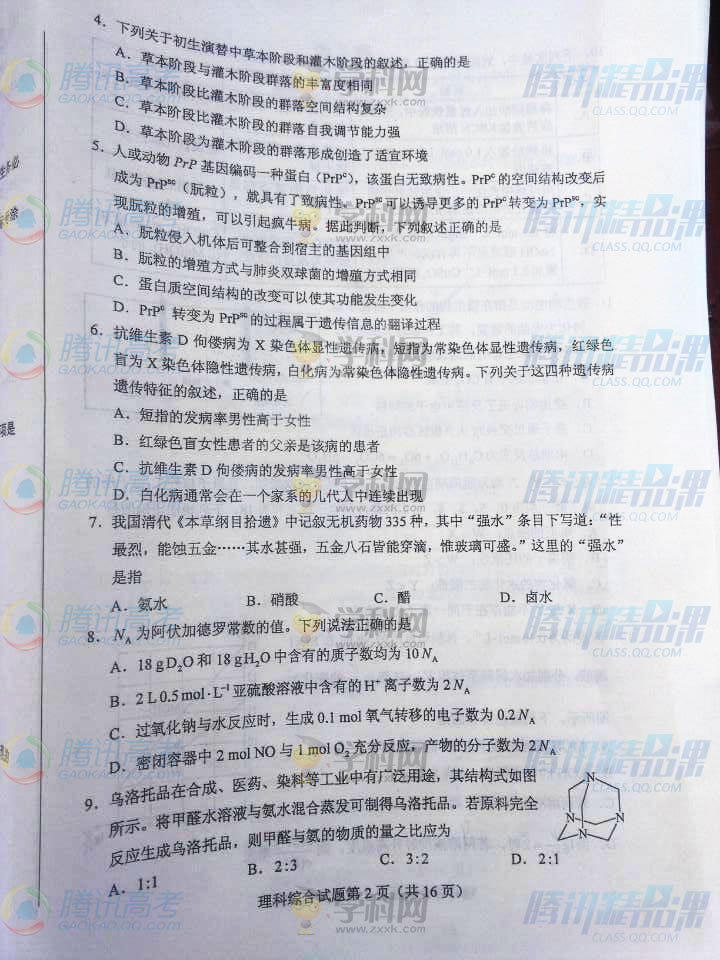 4．下列关于初生演替中草本阶段和灌木阶段的叙述，正确的是
A．草本阶段与灌木阶段群落的丰富度相同
B．草本阶段比灌木阶段的群落空间结构复杂
C．草本阶段比灌木阶段的群落自我调节能力强
D．草本阶段为灌木阶段的群落形成创造了适宜环境
5．人或动物 PrP 基因编码一种蛋白（PrPᶜ），该蛋白无致病性。PrPᶜ 的空间结构改变后
成为 PrPˢᶜ（朊粒），就具有了致病性。PrPˢᶜ 可以诱导更多的 PrPᶜ 转变为 PrPˢᶜ，实
现朊粒的增殖，可以引起疯牛病。据此判断，下列叙述正确的是
A．朊粒侵入机体后可整合到宿主的基因组中
B．朊粒的增殖方式与肺炎双球菌的增殖方式相同
C．蛋白质空间结构的改变可以使其功能发生变化
D．PrPᶜ 转变为 PrPˢᶜ 的过程属于遗传信息的翻译过程
6．抗维生素 D 佝偻病为 X 染色体显性遗传病，短指为常染色体显性遗传病，红绿色
盲为 X 染色体隐性遗传病，白化病为常染色体隐性遗传病。下列关于这四种遗传病
遗传特征的叙述，正确的是
A．短指的发病率男性高于女性
B．红绿色盲女性患者的父亲是该病的患者
C．抗维生素 D 佝偻病的发病率男性高于女性
D．白化病通常会在一个家系的几代人中连续出现
7．我国清代《本草纲目拾遗》中记叙无机药物 335 种，其中“强水”条目下写道：“性
最烈，能蚀五金……其水甚强，五金八石皆能穿滴，惟玻璃可盛。”这里的“强水”
是指
A．氨水 B．硝酸 C．醋 D．卤水
8．N_A 为阿伏加德罗常数的值。下列说法正确的是
A．18 g D₂O 和 18 g H₂O 中含有的质子数均为 10 N_A
B．2 L 0.5 mol·L⁻¹ 亚硫酸溶液中含有的 H⁺ 离子数为 2 N_A
C．过氧化钠与水反应时，生成 0.1 mol 氧气转移的电子数为 0.2 N_A
D．密闭容器中 2 mol NO 与 1 mol O₂ 充分反应，产物的分子数为 2 N_A
9．乌洛托品在合成、医药、染料等工业中有广泛用途，其结构式如图
所示。将甲醛水溶液与氨水混合蒸发可制得乌洛托品。若原料完全
反应生成乌洛托品，则甲醛与氨的物质的量之比应为
A．1:1 B．2:3 C．3:2 D．2:1
N
N
N
N
理科综合试题第 2 页（共 16 页）
腾讯高考
GAOKAO.QQ.COM
学科网
www.zxxk.com
腾讯精品课
CLASS.QQ.COM